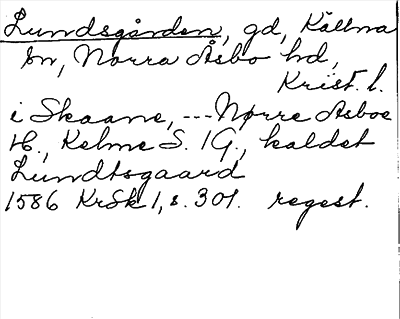 Lundsgården, gd, Källna
sn, Norra Åsbo hd,
Krist. l.
i Skaane, --- Nørre Asboe
H., Kelme S. 1 G., kaldet
Lundtsgaard
1586 KrSk 1, s. 301. regest.